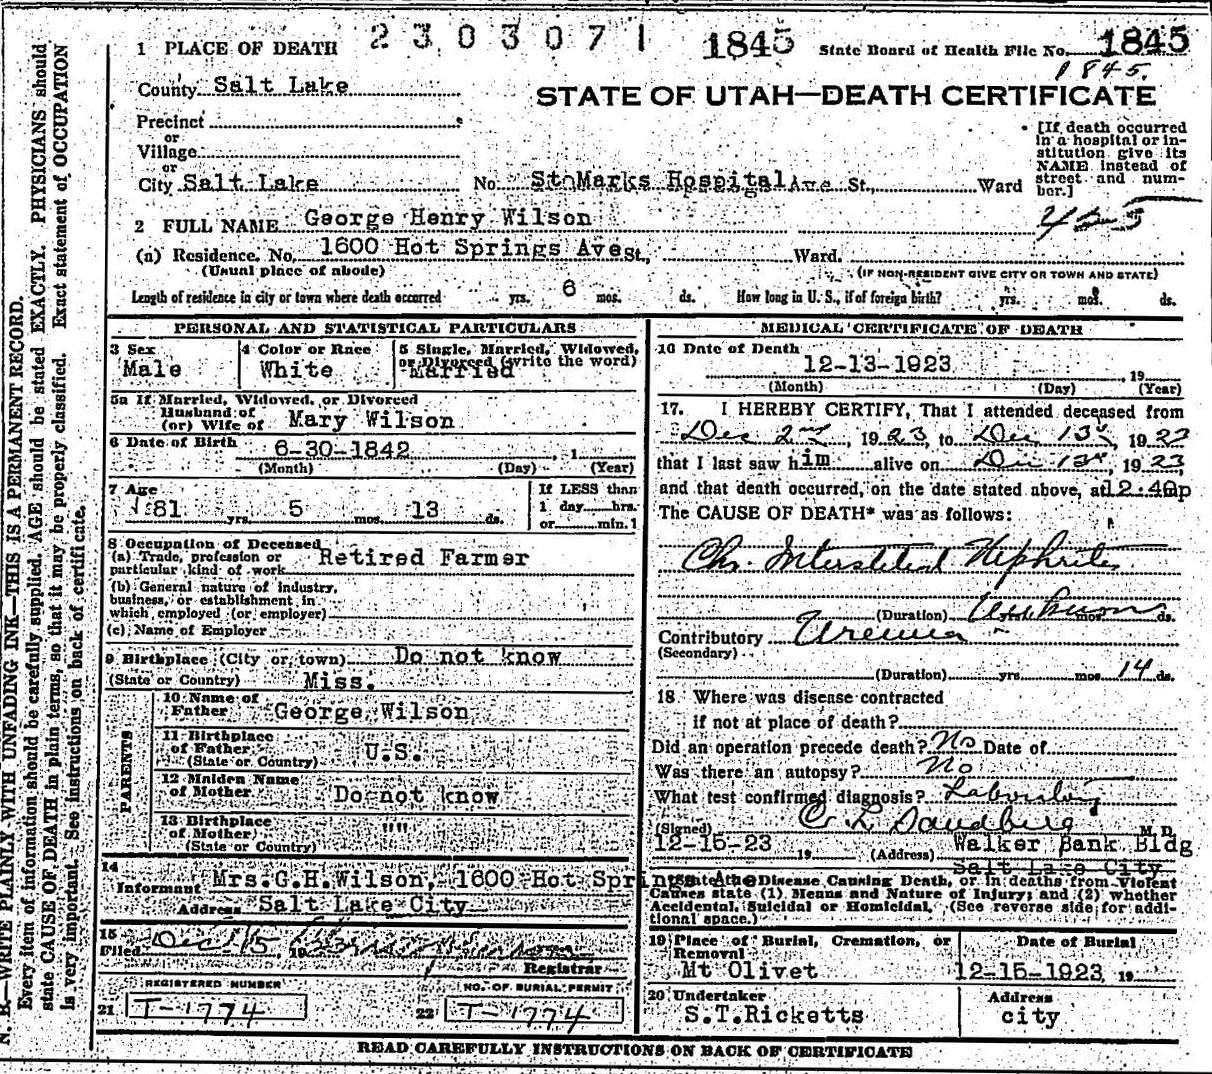 2303071 1845 State Board of Health File No. 1845
1845.
1 PLACE OF DEATH
County Salt Lake
STATE OF UTAH—DEATH CERTIFICATE
Precinct
or
Village
or
City Salt Lake No. St Marks Hospital Ave St., Ward
[If death occurred in a hospital or institution give its NAME instead of street and number.]
2 FULL NAME George Henry Wilson
(a) Residence. No. 1600 Hot Springs Ave St., Ward.
(Usual place of abode) (IF NON-RESIDENT GIVE CITY OR TOWN AND STATE)
Length of residence in city or town where death occurred yrs. 6 mos. ds. How long in U. S., if of foreign birth? yrs. mos. ds.
PERSONAL AND STATISTICAL PARTICULARS
3 Sex
Male
4 Color or Race
White
5 Single, Married, Widowed,
or Divorced (write the word)
Married
5a If Married, Widowed, or Divorced
Husband of
(or) Wife of Mary Wilson
6 Date of Birth 6-30-1842 , 1
(Month) (Day) (Year)
7 Age
81 yrs. 5 mos. 13 ds.
If LESS than
1 day hrs.
or min.
8 Occupation of Deceased
(a) Trade, profession or
particular kind of work Retired Farmer
(b) General nature of industry,
business, or establishment in
which employed (or employer)
(c) Name of Employer
9 Birthplace (City or town) Do not know
(State or Country) Miss.
PARENTS
10 Name of
Father George Wilson
11 Birthplace
of Father
(State or Country) U.S.
12 Maiden Name
of Mother Do not know
13 Birthplace
of Mother
(State or Country) ""
14
Informant Mrs.G.H.Wilson, 1600 Hot Springs Ave
Address Salt Lake City
15
Filed Dec 15, 19
Registrar
REGISTERED NUMBER
21 T-1774
NO. OF BURIAL PERMIT
22 T-1774
MEDICAL CERTIFICATE OF DEATH
16 Date of Death
12-13-1923 , 19
(Month) (Day) (Year)
17. I HEREBY CERTIFY, That I attended deceased from
Dec 2nd, 1923, to Dec 13th, 1923
that I last saw him alive on Dec 13th, 1923,
and that death occurred, on the date stated above, at 12:40p m
The CAUSE OF DEATH* was as follows:
Chr. Interstitial Nephritis
(Duration) Unknown yrs. mos. ds.
Contributory Uremia
(Secondary)
(Duration) yrs. mos. 14 ds.
18 Where was disease contracted
if not at place of death?
Did an operation precede death? No Date of
Was there an autopsy? No
What test confirmed diagnosis? Laboratory
(Signed) C L Sandberg M. D.
12-15-23 19 (Address) Walker Bank Bldg
Salt Lake City
*State the Disease Causing Death, or in deaths from Violent
Causes state (1) Means and Nature of Injury; and (2) whether
Accidental, Suicidal or Homicidal. (See reverse side for addi-
tional space.)
19 Place of Burial, Cremation, or
Removal
Mt Olivet
Date of Burial
12-15-1923, 19
20 Undertaker
S.T.Ricketts
Address
city
READ CAREFULLY INSTRUCTIONS ON BACK OF CERTIFICATE
N. B.—WRITE PLAINLY WITH UNFADING INK—THIS IS A PERMANENT RECORD.
Every item of information should be carefully supplied. AGE should be stated EXACTLY. PHYSICIANS should
state CAUSE OF DEATH in plain terms, so that it may be properly classified. Exact statement of OCCUPATION
is very important. See instructions on back of certificate.